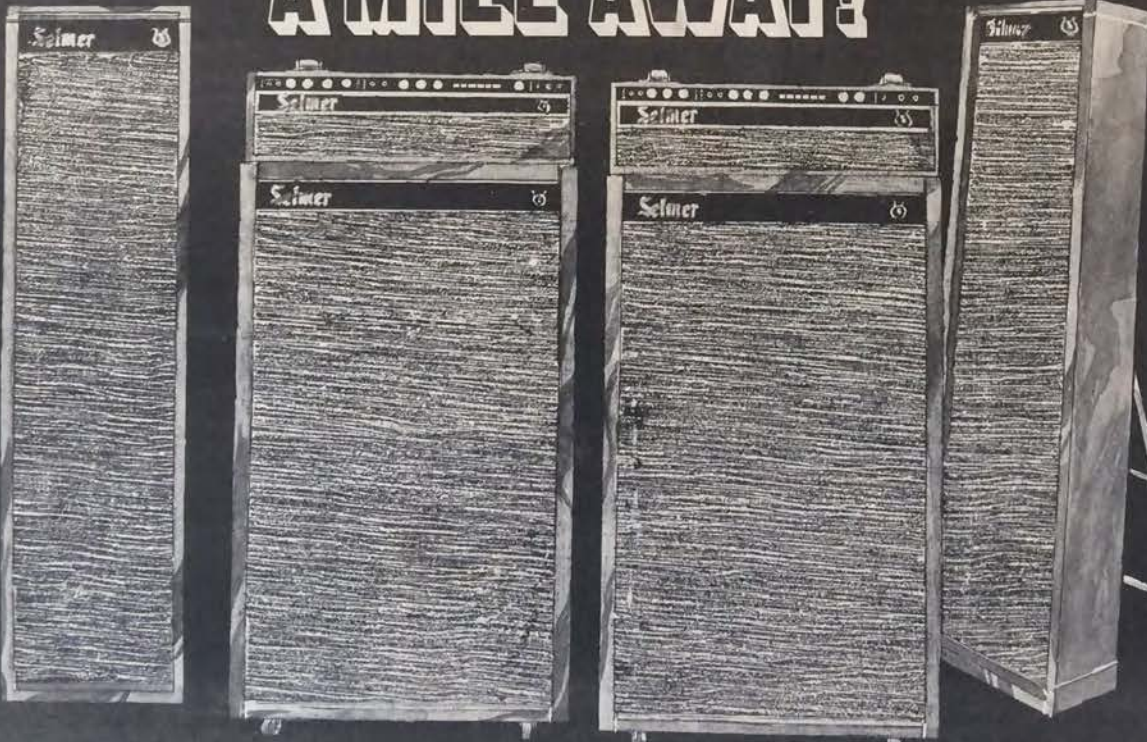 A MILE AWAY!
Selmer
Selmer
Selmer
Selmer
Selmer
Selmer